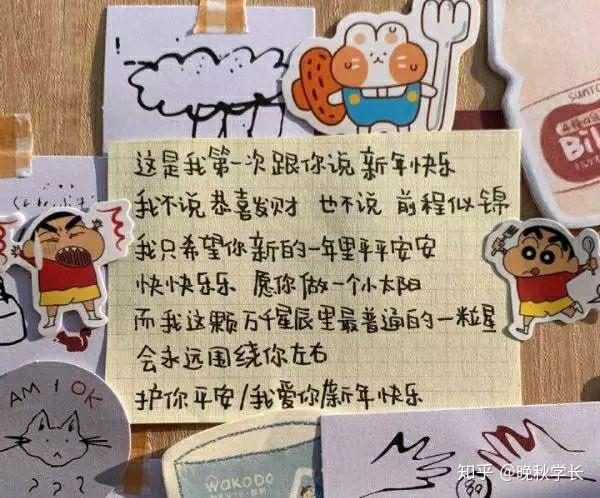 这是我第一次跟你说新年快乐
我不说恭喜发财 也不说 前程似锦
我只希望你新的一年里平平安安
快快乐乐 愿你做一个小太阳
而我这颗万千星辰里最普通的一粒星
会永远围绕你左右
护你平安/我爱你/新年快乐
AM I OK
? ? ?
wakodo
知乎 @晚秋学长